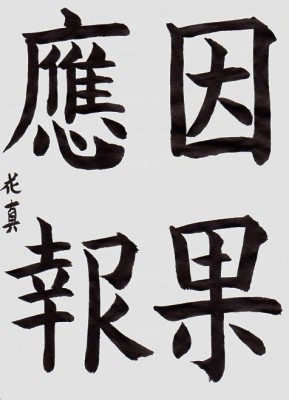 因果
應報
花真